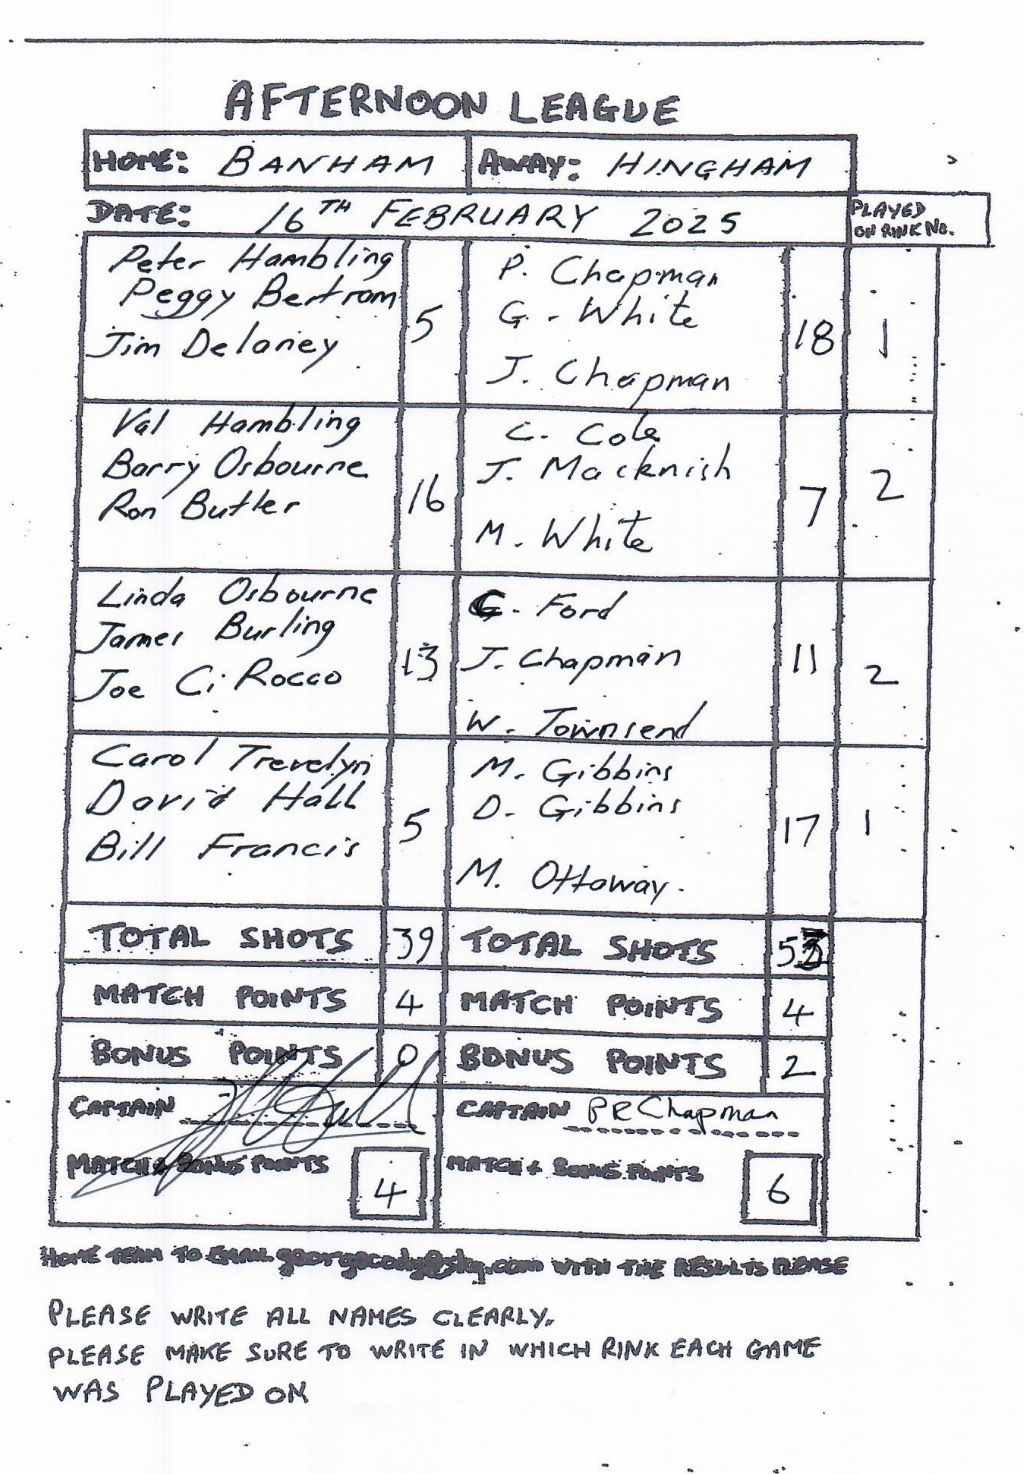 AFTERNOON LEAGUE
HOME: BANHAM AWAY: HINGHAM
DATE: 16TH FEBRUARY 2025 PLAYED ON RINK No.
Peter Hambling P. Chapman
Peggy Bertram G. White
5 18 1
Jim Delaney J. Chapman
Val Hambling C. Cole
Barry Osbourne J. Macknish
16 7 2
Ron Butler M. White
Linda Osbourne G. Ford
James Burling J. Chapman
13 11 2
Joe Ci Rocco W. Townsend
Carol Trevelyn M. Gibbins
David Hall D. Gibbins
5 17 1
Bill Francis M. Ottoway.
TOTAL SHOTS 39 TOTAL SHOTS 53
MATCH POINTS 4 MATCH POINTS 4
BONUS POINTS 0 BONUS POINTS 2
CAPTAIN CAPTAIN P R Chapman
MATCH & BONUS POINTS 4 MATCH + BONUS POINTS 6
HOME TEAM TO EMAIL georgecody@sky.com WITH THE RESULTS PLEASE
PLEASE WRITE ALL NAMES CLEARLY.
PLEASE MAKE SURE TO WRITE IN WHICH RINK EACH GAME
WAS PLAYED ON